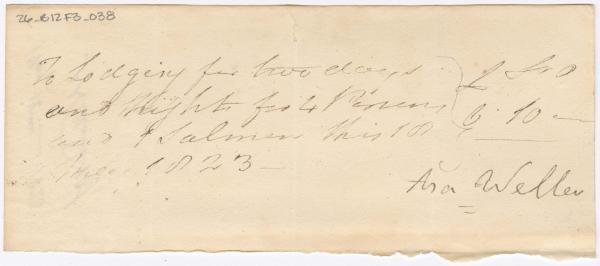 26_B12F3_038
To Lodging for two days
and Nights for 4 Persons
and 1 Salmon this 18
1823
£ S D
6 " 10
Asa Weller